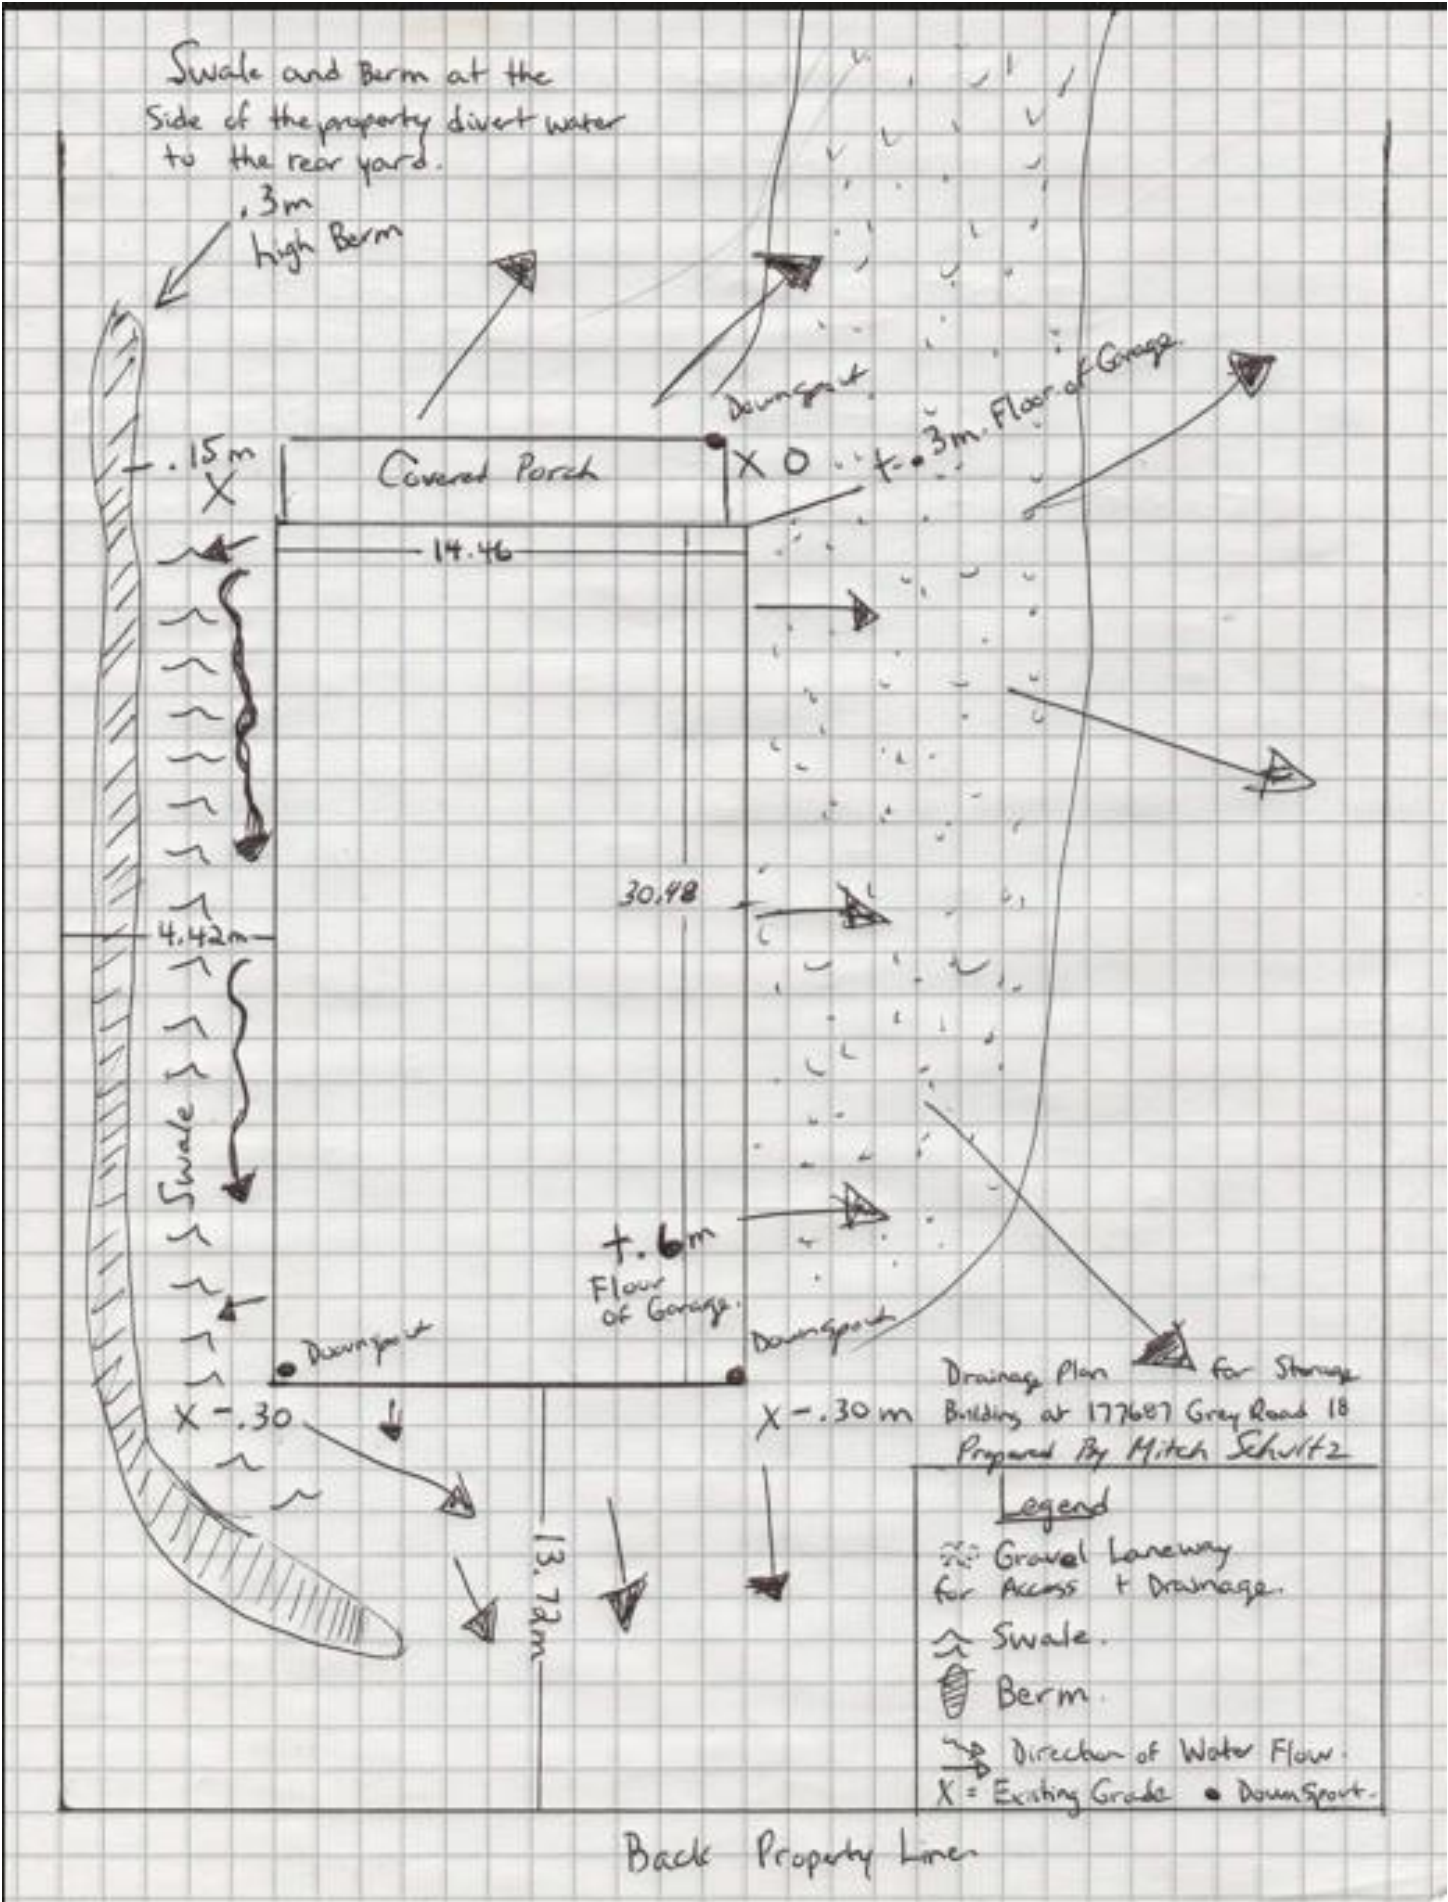 Swale and Berm at the
Side of the property divert water
to the rear yard.
.3m
high Berm
Downspout
+.3m Floor of Garage.
-.15m
X
Covered Porch
X 0
14.46
30.48
4.42m
Swale
+.6m
Floor
of Garage.
Downspout
Downspout
X -.30
X -.30m
13.72m
Drainage Plan for Storage
Building at 177687 Grey Road 18
Prepared By Mitch Schultz
Legend
Gravel Laneway
for Access + Drainage.
Swale.
Berm.
Direction of Water Flow.
X = Existing Grade • Downspout.
Back Property Line